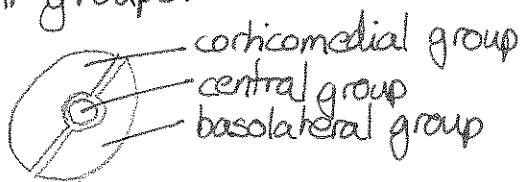 groups.
corticomedial group
central group
basolateral group